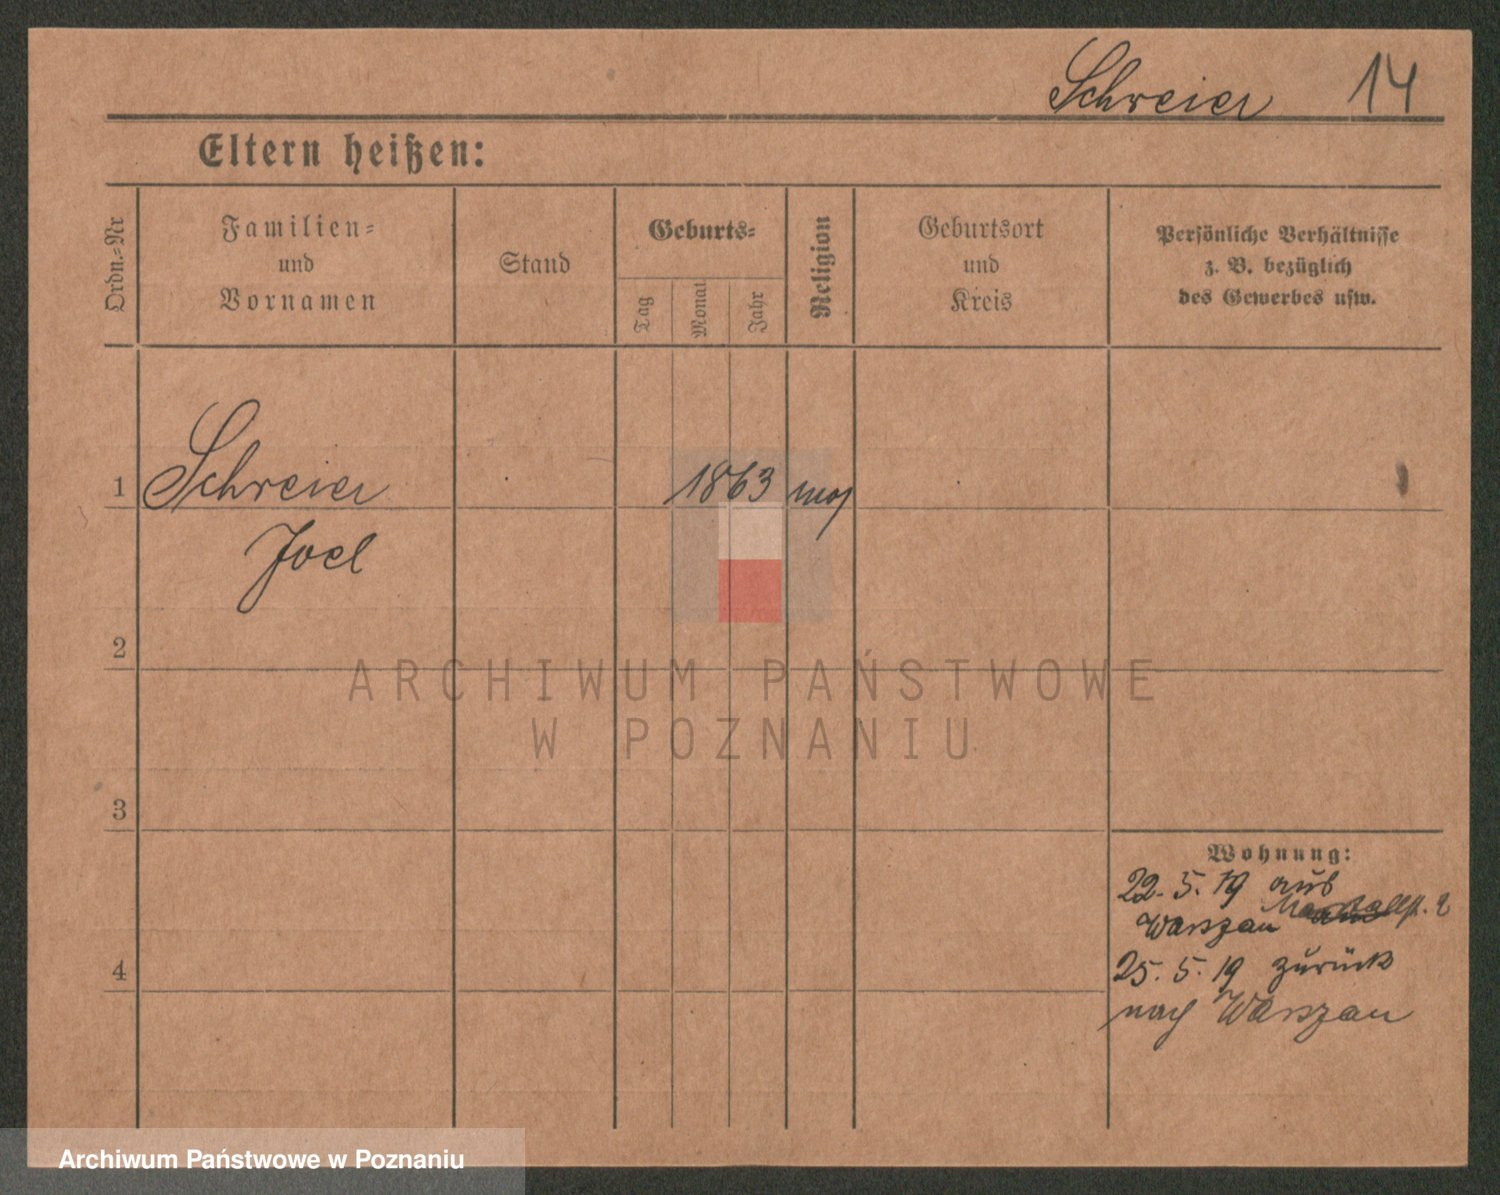 Schreier 14
Eltern heißen:
Ordn.-Nr
Familien-
und
Vornamen
Stand
Geburts-
Tag
Monat
Jahr
Religion
Geburtsort
und
Kreis
Persönliche Verhältnisse
z. B. bezüglich
des Gewerbes usw.
1 Schreier 1863 mos
Joel
2
ARCHIWUM PAŃSTWOWE
W POZNANIU
3
Wohnung:
22. 5. 19 aus
Warszau
4
25. 5. 19 zurück
nach Warszau
Archiwum Państwowe w Poznaniu